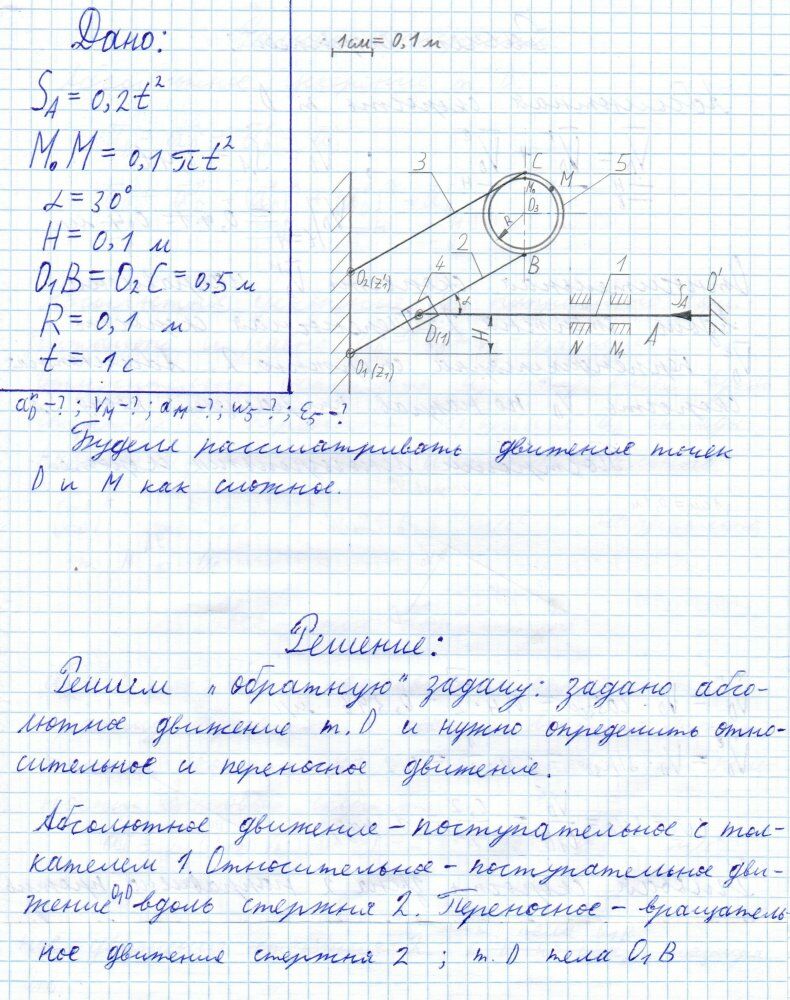 Дано:
S_A = 0,2t²
M₀M = 0,1πt²
α = 30°
H = 0,1 м
O₁B = O₂C = 0,5 м
R = 0,1 м
t = 1 с
1см = 0,1 м
3
C
M
5
M₀
O₃
R
O₂(z₁')
4
2
B
1
O'
α
S_A
D(1)
H
N
N₁
A
O₁(z₁)
a_D^n -?; V_M -?; a_M -?; ω₅ -?; ε₅ -?
Будем рассматривать движение точек
D и M как сложное.
Решение:
Решим "обратную" задачу: задано абсо-
лютное движение т. D и нужно определить отно-
сительное и переносное движение.
Абсолютное движение – поступательное с тол-
кателем 1. Относительное – поступательное дви-
жение O₁D вдоль стержня 2. Переносное – вращатель-
ное движение стержня 2 ; т. D тела O₁B